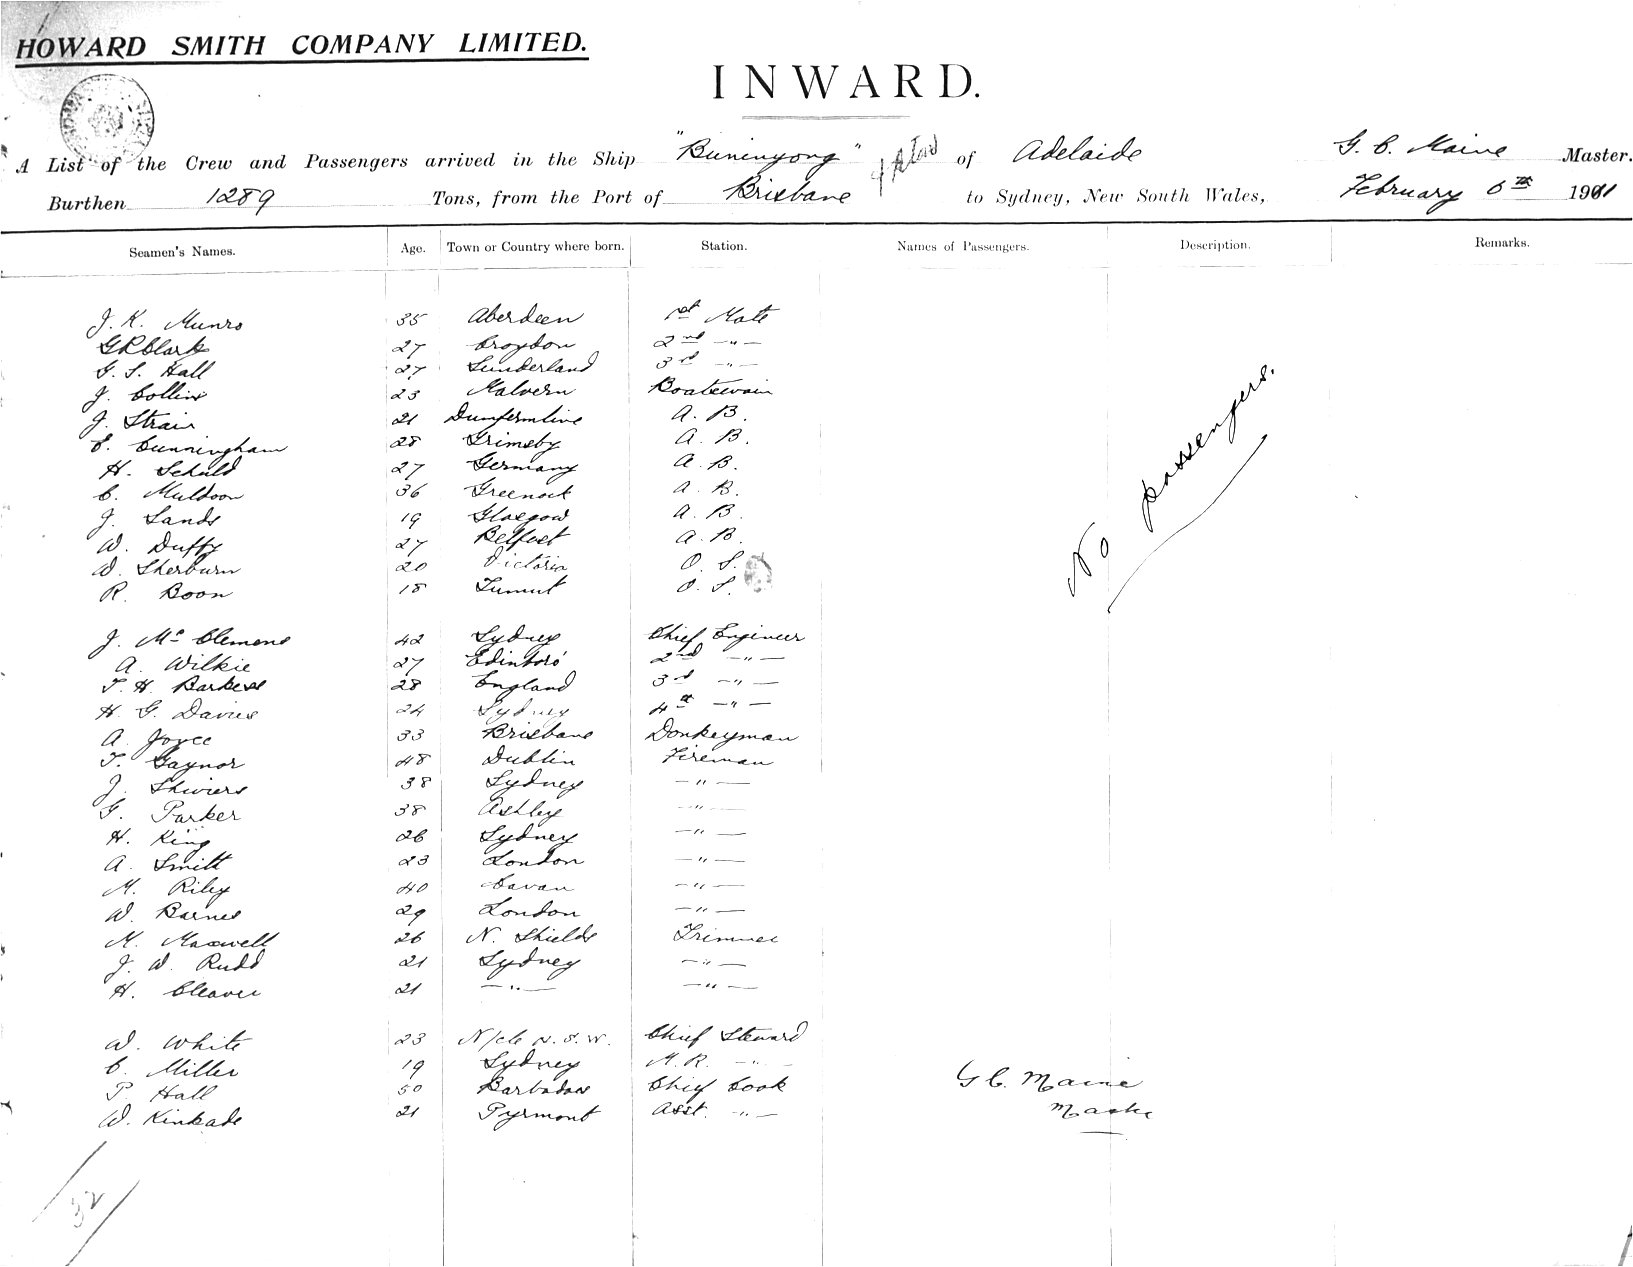 HOWARD SMITH COMPANY LIMITED.
INWARD.
A List of the Crew and Passengers arrived in the Ship "Buninyong" of Adelaide G. C. Maine Master.
Burthen 1289 Tons, from the Port of Brisbane to Sydney, New South Wales, February 6th 1911
Seamen's Names. Age. Town or Country where born. Station. Names of Passengers. Description. Remarks.
J. K. Munro 35 Aberdeen 1st Mate
G R Clark 27 Croydon 2nd —"—
G. S. Hall 27 Sunderland 3rd —"—
J. Collins 23 Malvern Boatswain
J. Strain 21 Dunfermline A. B.
E. Cunningham 28 Grimsby A. B.
H. Schuld 27 Germany A. B.
C. Muldoon 36 Greenock A. B.
J. Sands 19 Glasgow A. B.
W. Duffy 27 Belfast A. B.
W. Sherburn 20 Victoria O. S.
R. Boon 18 Tumut O. S.
No passengers.
J. Mc Clemens 42 Sydney Chief Engineer
A. Wilkie 27 Edinboro' 2nd —"—
T. H. Barkess 28 England 3rd —"—
H. G. Davies 24 Sydney 4th —"—
A. Joyce 33 Brisbane Donkeyman
T. Gaynor 48 Dublin Fireman
J. Skiviers 38 Sydney —"—
G. Parker 38 Ashley —"—
H. King 26 Sydney —"—
A. Smith 23 London —"—
M. Riley 40 Cavan —"—
W. Barnes 29 London —"—
M. Maxwell 26 N. Shields Trimmer
J. W. Rudd 21 Sydney —"—
H. Cleaver 21 —"— —"—
W. White 23 N/cle N.S.W. Chief Steward
C. Miller 19 Sydney M. R. —"—
P. Hall 50 Barbados Chief Cook
W. Kinkade 21 Pyrmont Asst. —"—
G C. Maine
Master
32